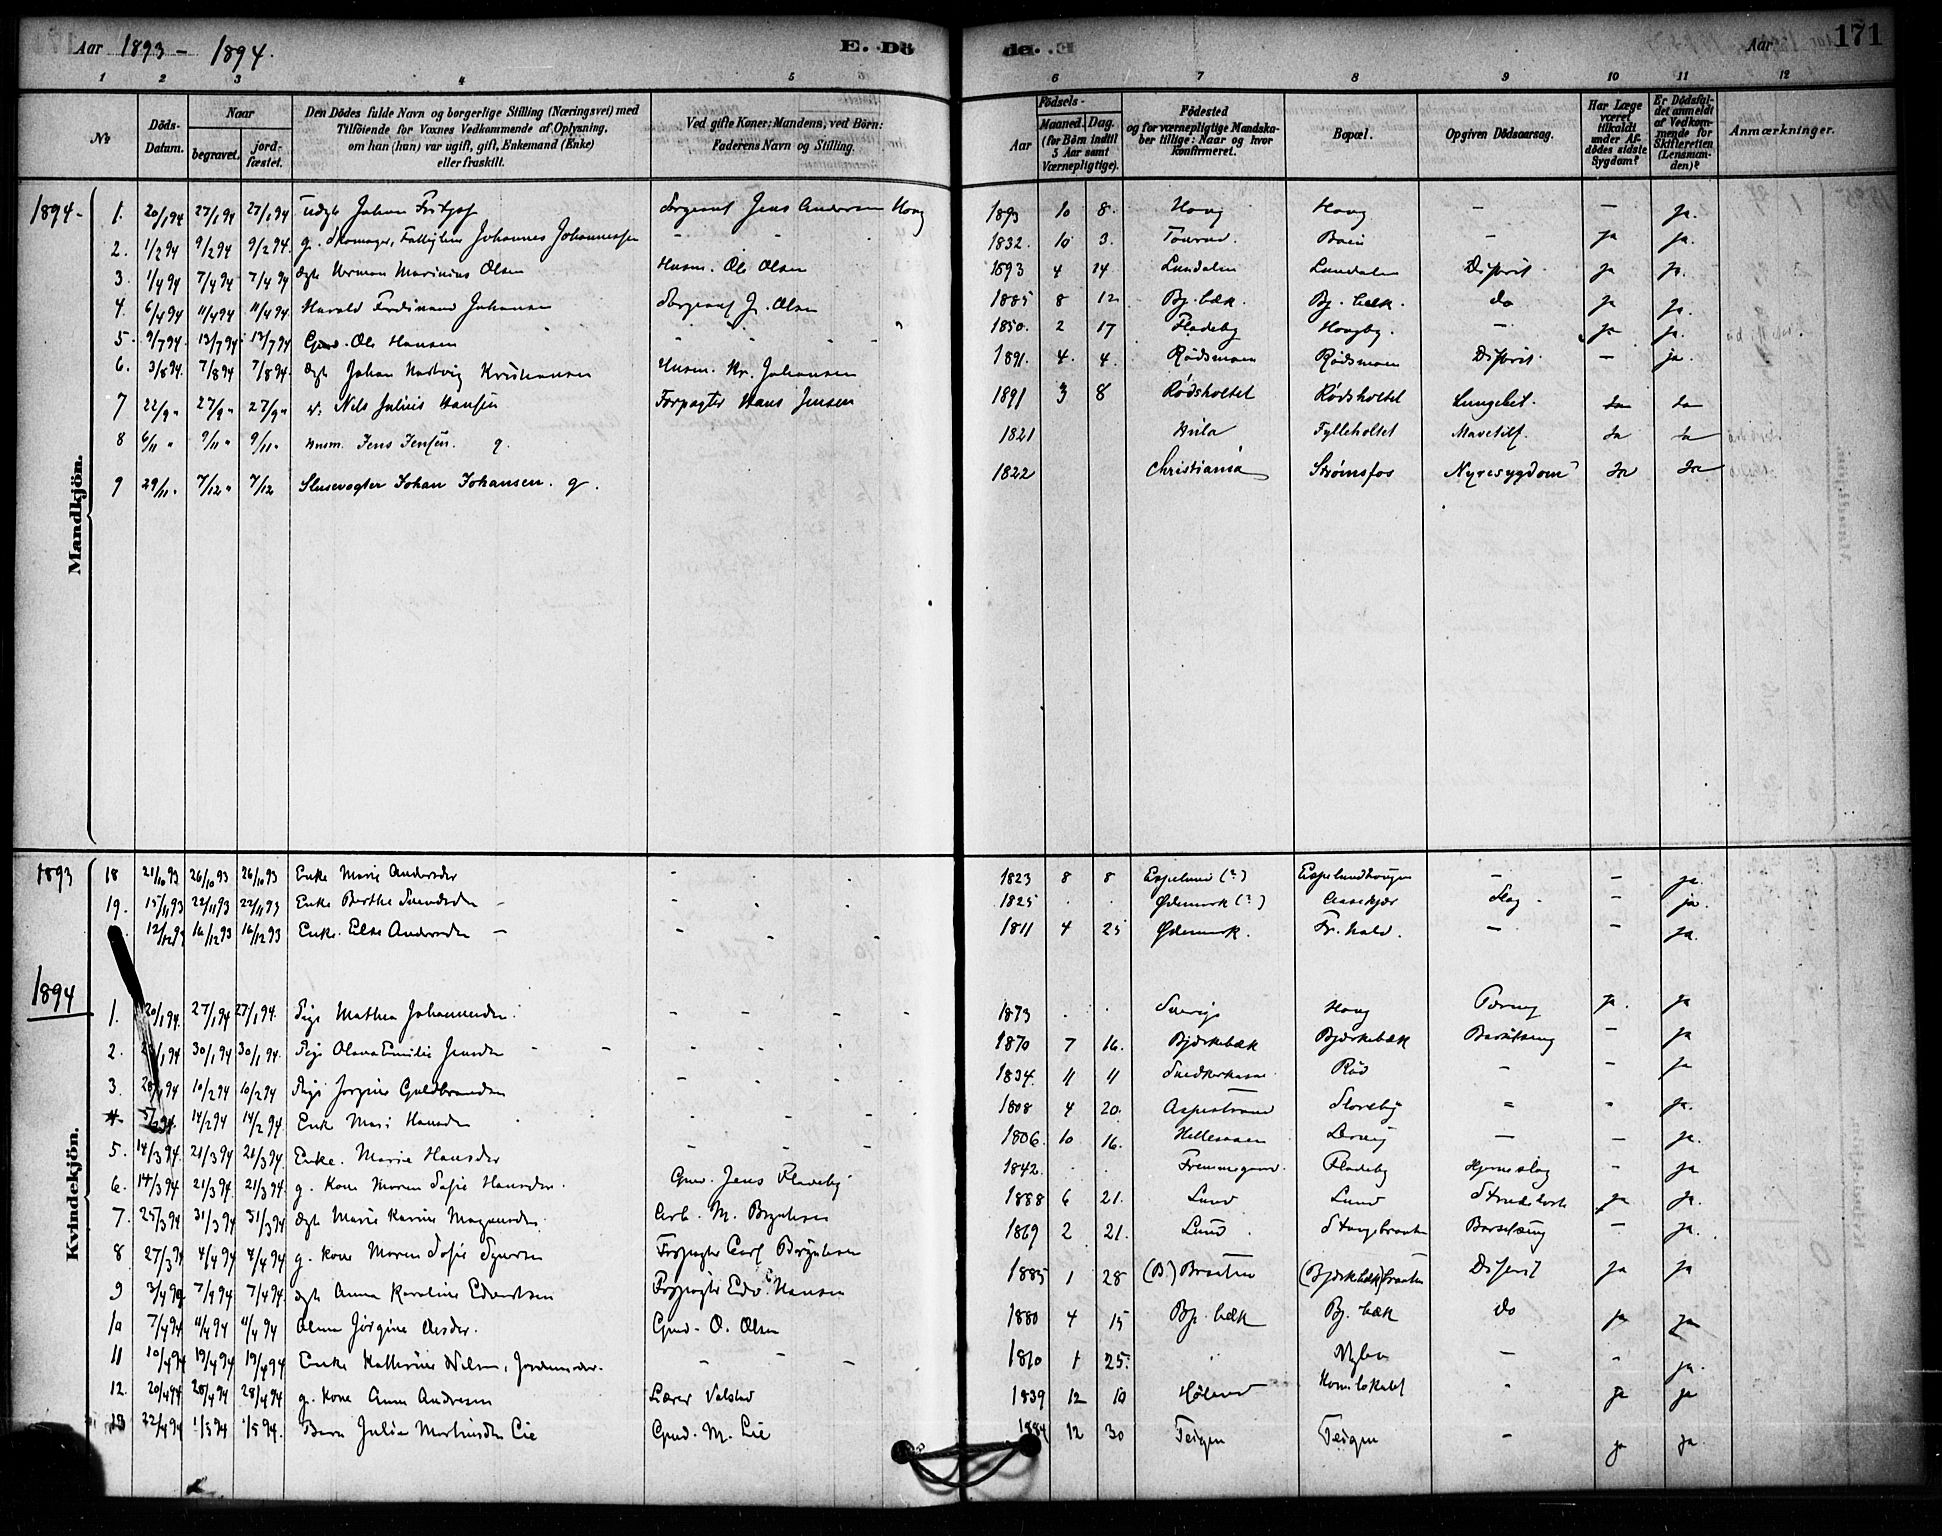 Aar 1893 – 1894. E. Dö
de. Aar 171
1 2 3 4 5 6 7 8 9 10 11 12
No
Döds-Datum.
Naar
begravet.
jord-fæstet.
Den Dödes fulde Navn og borgerlige Stilling (Næringsvei) med
Tilföiende for Voxnes Vedkommende af Oplysning,
om han (hun) var ugift, gift, Enkemand (Enke)
eller fraskilt.
Ved gifte Koner: Mandens, ved Börn:
Faderens Navn og Stilling.
Födsels-
Aar
Maaned. Dag.
(for Börn indtil
5 Aar samt
Værnepligtige).
Födested
og for værnepligtige Mandska-
ber tillige: Naar og hvor
konfirmeret.
Bopæl.
Opgiven Dödsaarsag.
Har Læge
været
tilkaldt
under Af-
dödes sidste
Sygdom?
Er Dödsfal-
det anmeldt
af Vedkom-
mende for
Skifteretten
(Lensman-
den)?
Anmærkninger.
Mandkjön.
1894-
1. 20/1 94 27/1 94 27/1 94 Johan Fritjof Sergeant Jens Andersen Houg 1893 10 8. Houg Houg – – ja.
2. 1/2 94 9/2 94 9/2 94. g. Skomager, Johannes Johannessen – 1832. 10 3. – ja ja.
3. 1/4 94 7/4 94 7/4 94 ægte Herman Marinius Olsen Husm. Ole Olsen 1893 4 14. Lundalen Lundalen Difterit. ja ja.
4. 6/4 94 11/4 94 11/4 94 Harald Ferdinand Johansen Sergeant J. Olsen 1885 8 12. Bj. bæk. Bj. bæk. do ja ja.
5. 9/7 94. 13/7 94 13/7 94 Gmd. Ole Hansen 1850. 2 17 Fladeby Hougby. – ja ja.
6. 3/8 94. 7/8 94 7/8 94. ægte Johan Hartvig Kristiansen Husm. Kr. Johansen 1891. 4. 4. Rødsmoen Rødsmoen Difterit. – ja.
7 22/9 " 27/9 " 27/9 " Nils Julius Hansen Forpagter Hans Jensen 1891 3 8 Rødsholtet Rødsholtet Lungebet. Ja Ja
8 6/11 " 9/11 " 9/11 " Husm. Jens Jensen. g. 1821 Fylleholtet Ja Ja
9 29/11 " 7/12 " 7/12 Slusevogter Johan Johansen. g. 1822 Christiania Strømsfos Nyresygdom Ja Ja
Kvindekjön.
1893
18 21/10 93 26/10 93 26/10 93 Enke Marie Andersdr 1823 8 8 Espelund (?) Espelundhougen – – ja.
19. 15/11 93 22/11 93 22/11 93 Enke Berthe – 1825 . . Ødemark (?) Aasekjær Slag – ja.
12/12 93 16/12 93 16/12 93 Enke. Else Andersdr – 1811 4 25 Ødemark. Fr. hald. – – ja.
1894
1. 20/1 94. 27/1 94 27/1 94. Pige Mathea Johannesdr. 1873 . . Sverige Houg Tæring ja. ja
2. 30/1 94 30/1 94. Pige Olava Emilie Jensdr 1870 7 16. Bjørkebæk Bjørkebæk Barselseng – ja
3. 10/2 94 10/2 94 Pige Jørgine Guldbrandsdr 1834. 11 11 Rød – – ja
4. 5/2 94. 14/2 94 14/2 94. Enke Mari Hansdr 1808 4 20. Aspestrand ja.
5. 14/3 94. 21/3 94 21/3 94. Enke. Marie Hansdr 1806. 10 16. – – ja.
6. 14/3 94 21/3 94. 21/3 94 g. Kone Maren Sofie Hansdr. Gmd. Jens Fladeby 1842. . . Fladeby Hjerneslag – ja
7. 25/3 94 31/3 94 31/3 94 ægte Marie Karine Magnusdr. Arb. M. 1888 6 21. Lund Lund Strubehoste ja ja.
8 27/3 94 4/4 94 4/4 94 g. Kone Maren Sofie Forpagter Carl 1869 2 21. Lund Barselseng – ja.
9 3/4 94 7/4 94 7/4 94. ægte Anna Karoline Edvardsen Forpagter Edv. Hansen 1885 1 28 (B.) Braaten (Bjørkebæk) braaten Difterit ja ja
10 7/4 94 11/4 94 11/4 94 Jørgine Olesdr. Gmd. O. Olsen 1880 4 15 Bj. bæk Bj. bæk do ja ja
11 10/4 94 19/4 94 19/4 94 Enke Kathrine Nilsen, 1810 1 25. – – ja.
12. 20/4 94 28/4 94 28/4 94 g. Kone Anna Andresen Lærer Volstad 1839 12 10 Høland ja ja
13 22/4 94 1/5 94 1/5 94. Barn Julie Martinsdr Lie Gmd. M. Lie 1884 12 30 Teigen Teigen – ja ja